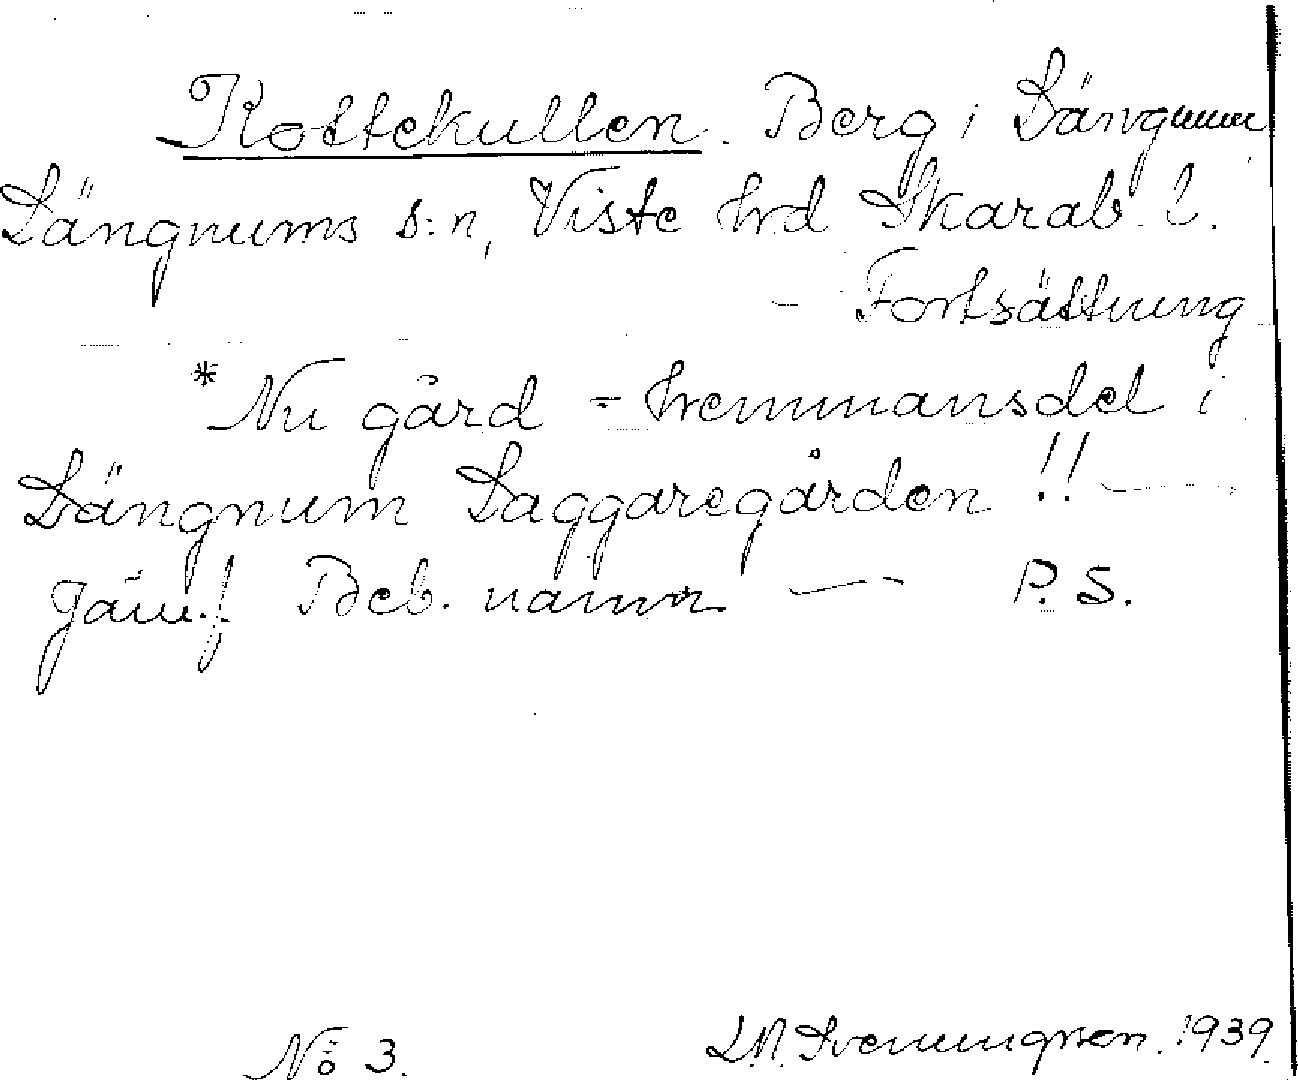 Kottekullen. Berg i Längnum
Längnums s:n, Viste hrd Skarab. l.
- Fortsättning
* Nu gård - hemmansdel i
Längnum Laggaregården !! —
Jämf. Beb. namn — P. S.
No 3. L.N. Svenungsson. 1939.